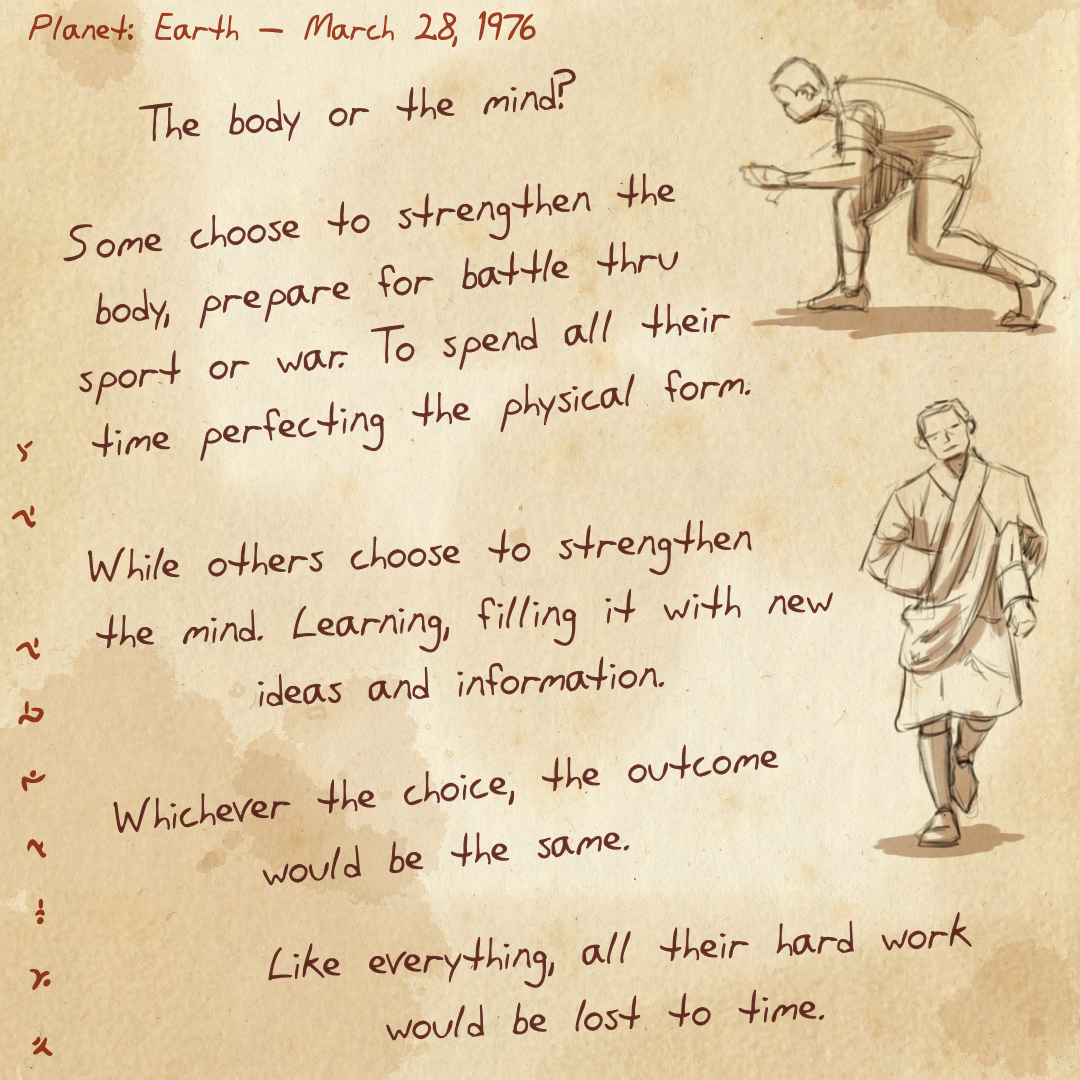 Planet: Earth — March 28, 1976
The body or the mind?
Some choose to strengthen the
body, prepare for battle thru
sport or war. To spend all their
time perfecting the physical form.
While others choose to strengthen
the mind. Learning, filling it with new
ideas and information.
Whichever the choice, the outcome
would be the same.
Like everything, all their hard work
would be lost to time.